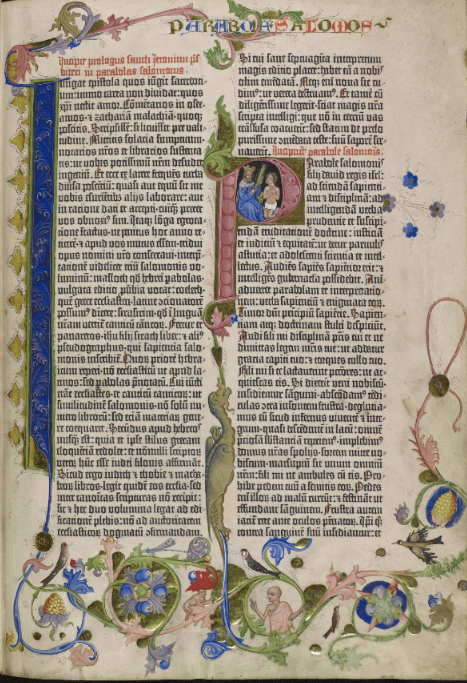 PARABOLE SALOMONIS
Incipit prologus sancti Jeronimi p̄s-
biteri in parabolas salomonis
Iungat epistola quos iungit sacerdo-
cium: immo carta non dividat: quos
xp̄i nectit amor. Cōmētarios in osee.
amos. ⁊ zachariā malachiā quoqȝ
poscitis. Scripsissē: si licuisset pre vali-
tudine. Mittitis solacia sumptuum.
notarios nr̄os et librarios sustenta-
tis: ut vobis potissimū nr̄m desudet
ingeniū. Et ecce ex latere frequēs turba
diversa poscētiū: quasi aut equū sit me
vobis esuriētibꝰ aliis laborare: aut
in ratione dati et accepti. cuiqȝ preter
vos obnoxiꝰ sim. Itaqȝ lōga egrota-
tione fractus. ne penitus hoc anno re-
ticerē. ⁊ apud vos mutus essem. tridui
opus nomini vr̄o consecraui. interp̄-
tationē videlicet triū salomonis vo-
luminū: masloth qd̄ hebrei pabolas.
vulgata editio pverbia vocat: coeleth
quē grece ecclesiastē. latine ꝯcionatorē
possumꝰ dicere: sirasirim. qd̄ ī linguā
nr̄am vertit̄ canticū cāticoȝ. Fertur et
panaretos. ih̄u filii sirach liber: ⁊ ali-
pseudographus. qui sapientia salo-
monis inscribit̄. Quoȝ priorē hebra-
icum repperi. nō ecclesiasticū ut apud la-
tinos: sed pabolas p̄notatū. Cui iūcti
erāt ecclesiastes. et canticū canticoȝ: ut
similitudinē salomonis. nō solū nu-
mero librorū: sed etiā materiaȝ gene-
re coequaret. Secūdus apud hebreos
nusqȝ est: quia et ipse stilus grecam
eloquētiā redolet: et nōnulli scriptoȝ
veteȝ hūc esse iudei filonis affirmāt.
Sicut ergo iudith ⁊ thobie ⁊ macha-
beoȝ libros. legit quidē eos ecclīa. sed
inter canonicas scripturas nō recipit:
sic ⁊ hec duo volumina legat ad edi-
ficationē plebis: nō ad auctoritatem
ecclesiasticoȝ dogmatū ꝯfirmandam.
Si cui sane septuaginta interpretum
magis editio placet: habet eā a nobis
olim emēdatā. Neqȝ enī noua sic cu-
dimꝰ: ut vetera destruamꝰ. Et tamē cū
diligētissime legerit. sciat magis nr̄a
scripta intelligi: que nō in terciū vas
trāsfusa coacuerīt: sed statim de prelo
purissime ꝯmēdata teste: suū saporē ser-
vauerīt. Incipiūt parabole salomonis.
Parabole salomonis
filii david regis isrl̄:
ad sciendā sapienti-
am ⁊ disciplinā: ad
intelligenda verba
prudentie et suscipi-
endā eruditionē doctrine: iusticiā
et iudiciū ⁊ equitatē: ut detur paruulis
astutia: et adolescenti scientia et intel-
lectus. Audiēs sapiēs sapiētior erit: ⁊
intelligēs gubernacla possidebit. Ani-
aduertet parabolam et interpretatio-
nem: verba sapientiū ⁊ enigmata eoȝ.
Timor dn̄i principiū sapiētie. Sapien-
tiam atqȝ doctrinam stulti despiciūt.
Audi fili mi disciplinā pr̄is tui et ne
dimittas legem mr̄is tue: ut addatur
gratia capiti tuo: ⁊ torques collo tuo.
Fili mi si te lactauerīt pctōres: ne ac-
quiescas eis. Si dixerīt veni nobiscū.
insidiemur sāguini. abscōdamꝰ tēdi-
culas ꝯtra insontem frustra: degluti-
amꝰ eū sicut infernꝰ viuentē ⁊ inte-
grum. quasi descēdētē in lacū: omnē
pciosā substātiā repiemꝰ. implebimꝰ
domus nr̄as spoliis: sortem mitte no-
biscum. marsupiū sit unum omniū
nr̄m: fili mi ne ambules cū eis. Pro-
hibe pedem tuū a semitis eoȝ. Pedes
enī illoȝ ad malū currūt: ⁊ festināt ut
effundant sāguinem. Frustra autem
iacit̄ rete ante oculos pēnatoȝ. Ipi qȝ
contra sanguinē suū insidiantur: et